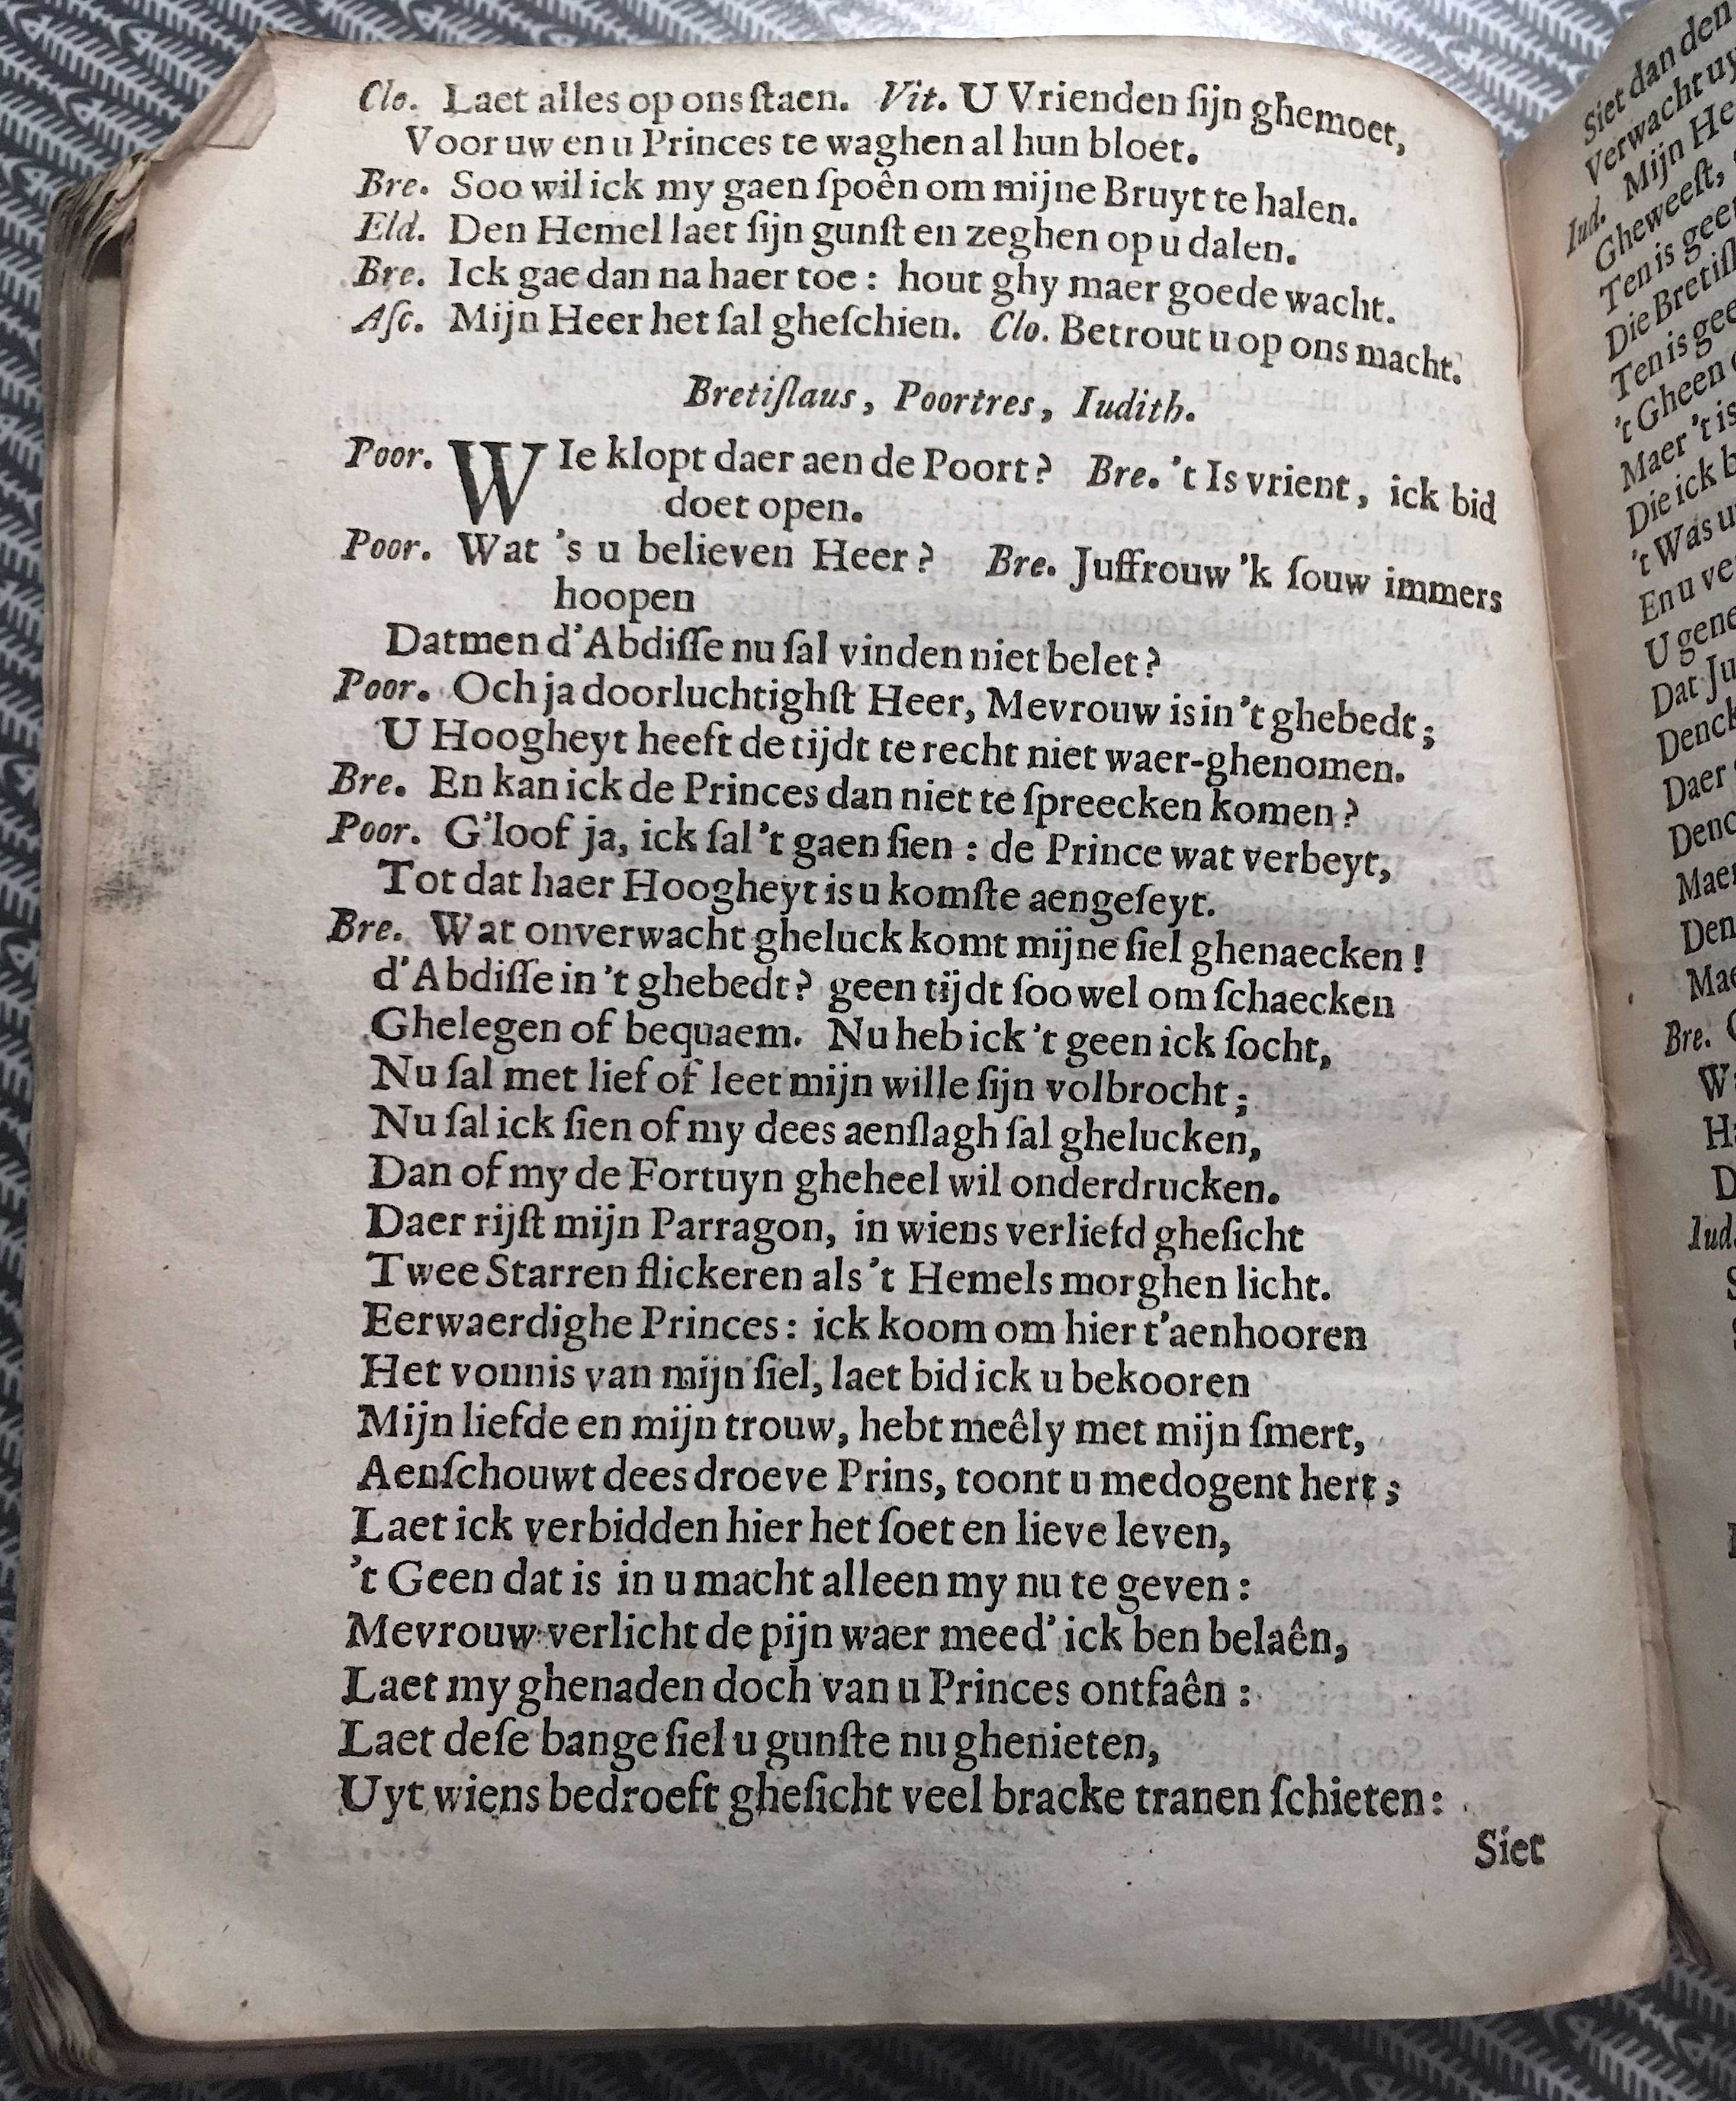 Clo. Laet alles op ons ſtaen. Vit. U Vrienden ſijn ghemoet,
Voor uw en u Princes te waghen al hun bloet.
Bre. Soo wil ick my gaen ſpoên om mijne Bruyt te halen.
Eld. Den Hemel laet ſijn gunſt en zeghen op u dalen.
Bre. Ick gae dan na haer toe: hout ghy maer goede wacht.
Aſc. Mijn Heer het ſal gheſchien. Clo. Betrout u op ons macht.
Bretiſlaus, Poortres, Iudith.
Poor. WIe klopt daer aen de Poort? Bre. 't Is vrient, ick bid
doet open.
Poor. Wat 's u believen Heer? Bre. Juffrouw 'k ſouw immers
hoopen
Datmen d'Abdiſſe nu ſal vinden niet belet?
Poor. Och ja doorluchtighſt Heer, Mevrouw is in 't ghebedt;
U Hoogheyt heeft de tijdt te recht niet waer-ghenomen.
Bre. En kan ick de Princes dan niet te ſpreecken komen?
Poor. G'loof ja, ick ſal 't gaen ſien: de Prince wat verbeyt,
Tot dat haer Hoogheyt is u komſte aengeſeyt.
Bre. Wat onverwacht gheluck komt mijne ſiel ghenaecken!
d'Abdiſſe in 't ghebedt? geen tijdt ſoo wel om ſchaecken
Ghelegen of bequaem. Nu heb ick 't geen ick ſocht,
Nu ſal met lief of leet mijn wille ſijn volbrocht;
Nu ſal ick ſien of my dees aenſlagh ſal ghelucken,
Dan of my de Fortuyn gheheel wil onderdrucken.
Daer rijſt mijn Parragon, in wiens verliefd gheſicht
Twee Starren flickeren als 't Hemels morghen licht.
Eerwaerdighe Princes: ick koom om hier t'aenhooren
Het vonnis van mijn ſiel, laet bid ick u bekooren
Mijn liefde en mijn trouw, hebt meêly met mijn ſmert,
Aenſchouwt dees droeve Prins, toont u medogent hert;
Laet ick verbidden hier het ſoet en lieve leven,
't Geen dat is in u macht alleen my nu te geven:
Mevrouw verlicht de pijn waer meed' ick ben belaên,
Laet my ghenaden doch van u Princes ontfaên:
Laet deſe bange ſiel u gunſte nu ghenieten,
Uyt wiens bedroeft gheſicht veel bracke tranen ſchieten:
Siet
Siet dan den
Verwacht uy
Iud. Mijn He
Gheweeſt,
Ten is gee
Die Bretiſl
Ten is gee
't Gheen
Maer 't is
Die ick b
't Was u
En u ve
U gene
Dat Ju
Denck
Daer
Denc
Maer
Den
Mae
Bre.
W
H
D
Iud.